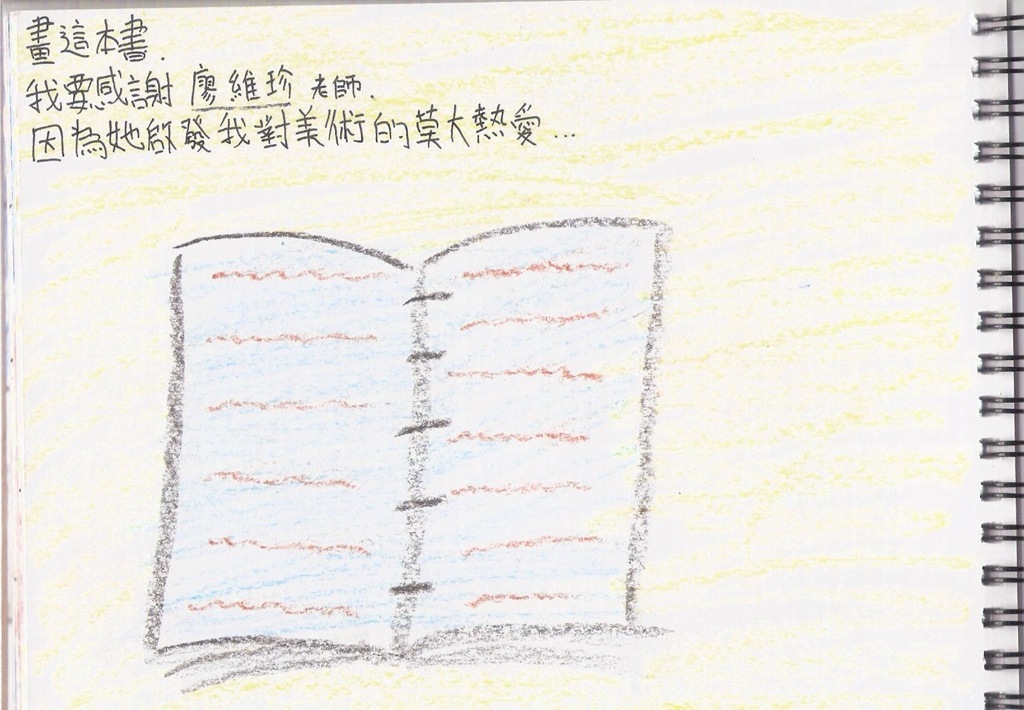 畫這本書.
我要感謝 廖維珍 老師.
因為她啟發我對美術的莫大熱愛...